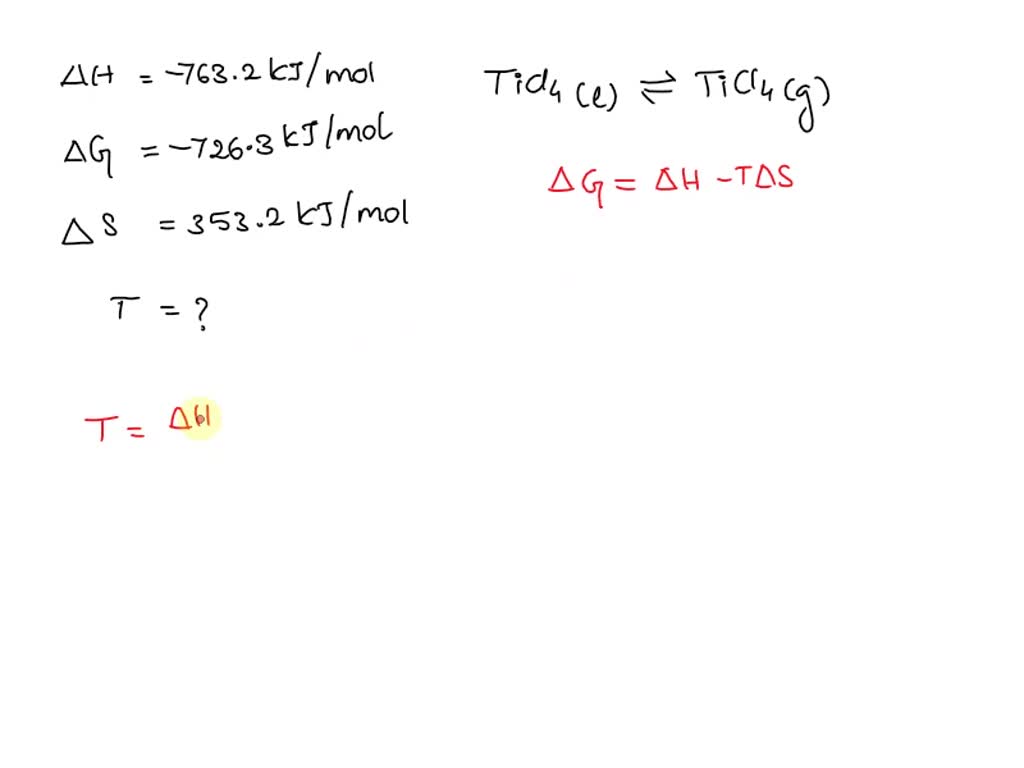 ΔH = -763.2 kJ/mol
ΔG = -726.3 kJ/mol
ΔS = 353.2 kJ/mol
T = ?
T = ΔH
TiCl4 (l) ⇌ TiCl4 (g)
ΔG = ΔH - TΔS